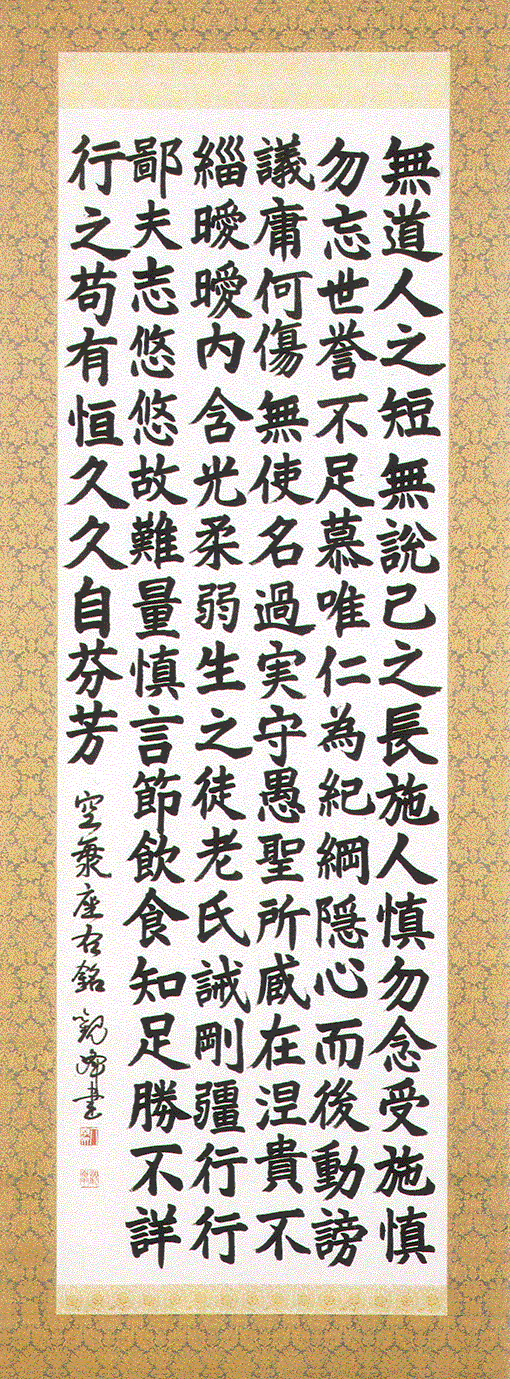 無道人之短無說己之長施人慎勿念受施慎
勿忘世誉不足慕唯仁為紀綱隠心而後動謗
議庸何傷無使名過実守愚聖所感在涅貴不
緇曖曖内含光柔弱生之徒老氏誡剛疆行行
鄙夫志悠悠故難量慎言節飲食知足勝不詳
行之苟有恒久久自芬芳 座右銘 觀峰書